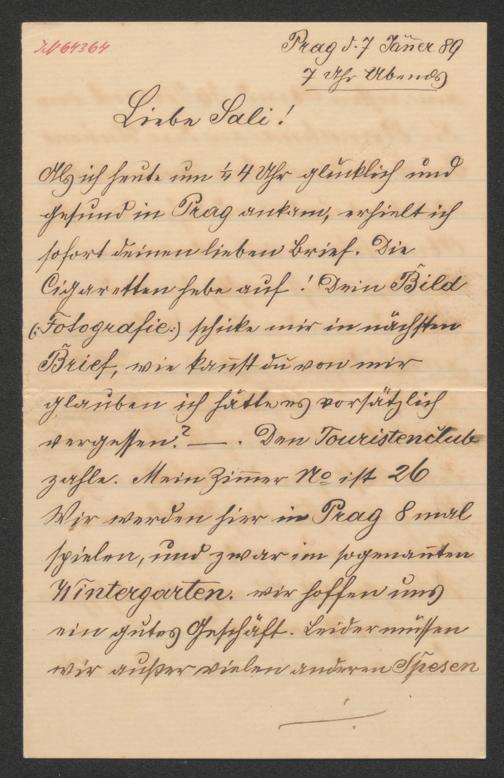 Prag d. 7 Jäner 89
7 Uhr Abends
Liebe Sali!
Als ich heute um ¼ 4 Uhr glücklich und
gesund in Prag ankam, erhielt ich
sofort deinen lieben Brief. Die
Cigaretten hebe auf! Dein Bild
(:Fotografie:) schicke mir in nächsten
Brief, wie kan̄st du von mir
glauben ich hätte es vorsätzlich
vergessen? —. Den Touristenclub
zahle. Mein Zim̄er No ist 26
Wir werden hier in Prag 8 mal
spielen, und zwar im sogenan̄ten
Wintergarten. wir hoffen uns
ein gutes Geschäft. Leider müssen
wir außer vielen anderen Spesen